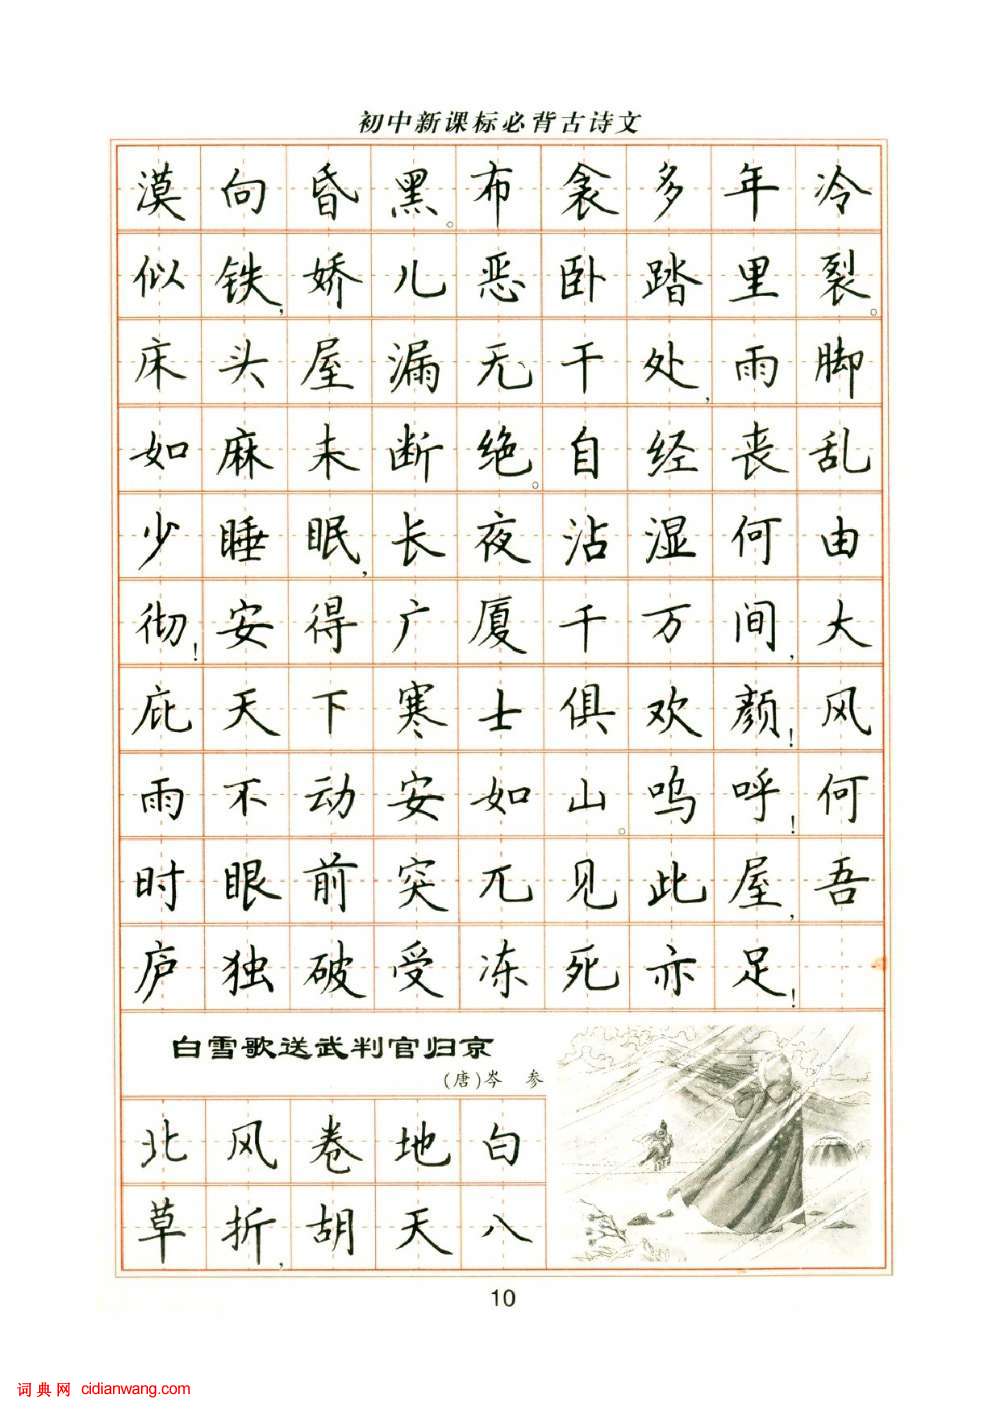 初中新课标必背古诗文
漠向昏黑。布衾多年冷
似铁,娇儿恶卧踏里裂。
床头屋漏无干处,雨脚
如麻未断绝。自经丧乱
少睡眠,长夜沾湿何由
彻!安得广厦千万间,大
庇天下寒士俱欢颜!风
雨不动安如山。呜呼!何
时眼前突兀见此屋,吾
庐独破受冻死亦足!
白雪歌送武判官归京
(唐)岑 参
北风卷地白
草折,胡天八
10
词典网 cidianwang.com